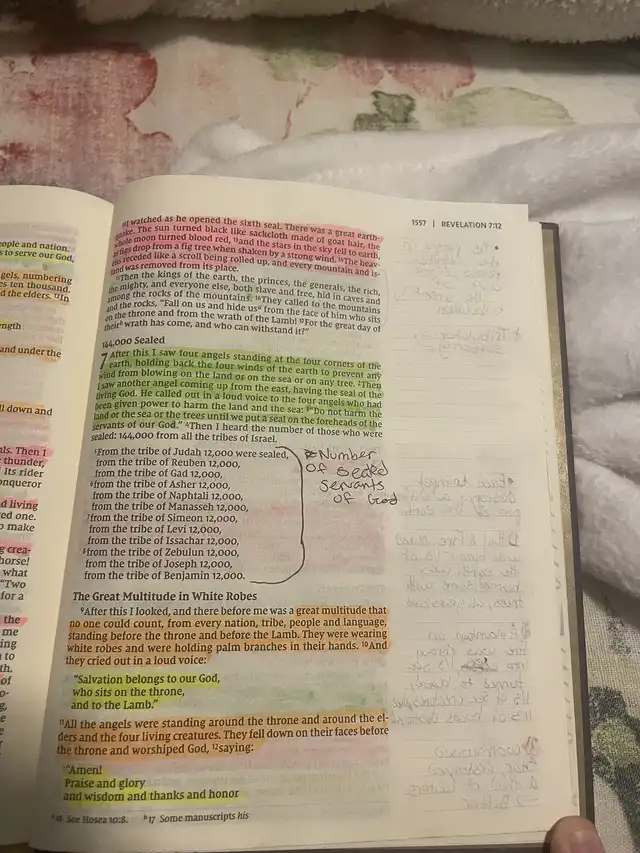 1557 | REVELATION 7:12
eople and nation.
s to serve our God,
gels, numbering
es ten thousand.
d the elders. 12In
ngth
and under the
ll down and
als. Then I
thunder,
Its rider
onqueror
d living
ed one.
o make
g crea-
horse!
what
"Two
for a
the
me
ing
to
th.
of
I watched as he opened the sixth seal. There was a great earth-
quake. The sun turned black like sackcloth made of goat hair, the
whole moon turned blood red, 13and the stars in the sky fell to earth,
as figs drop from a fig tree when shaken by a strong wind. 14The heav-
ens receded like a scroll being rolled up, and every mountain and is-
land was removed from its place.
15Then the kings of the earth, the princes, the generals, the rich,
the mighty, and everyone else, both slave and free, hid in caves and
among the rocks of the mountains. 16They called to the mountains
and the rocks, "Fall on us and hide us a from the face of him who sits
on the throne and from the wrath of the Lamb! 17For the great day of
their b wrath has come, and who can withstand it?"
144,000 Sealed
7 After this I saw four angels standing at the four corners of the
earth, holding back the four winds of the earth to prevent any
wind from blowing on the land or on the sea or on any tree. 2Then
I saw another angel coming up from the east, having the seal of the
living God. He called out in a loud voice to the four angels who had
been given power to harm the land and the sea: 3"Do not harm the
land or the sea or the trees until we put a seal on the foreheads of the
servants of our God." 4Then I heard the number of those who were
sealed: 144,000 from all the tribes of Israel.
5From the tribe of Judah 12,000 were sealed,
from the tribe of Reuben 12,000,
from the tribe of Gad 12,000,
6from the tribe of Asher 12,000,
from the tribe of Naphtali 12,000,
from the tribe of Manasseh 12,000,
7from the tribe of Simeon 12,000,
from the tribe of Levi 12,000,
from the tribe of Issachar 12,000,
8from the tribe of Zebulun 12,000,
from the tribe of Joseph 12,000,
from the tribe of Benjamin 12,000.
Number
of sealed
servants
of God
The Great Multitude in White Robes
9After this I looked, and there before me was a great multitude that
no one could count, from every nation, tribe, people and language,
standing before the throne and before the Lamb. They were wearing
white robes and were holding palm branches in their hands. 10And
they cried out in a loud voice:
"Salvation belongs to our God,
who sits on the throne,
and to the Lamb."
11All the angels were standing around the throne and around the el-
ders and the four living creatures. They fell down on their faces before
the throne and worshiped God, 12saying:
"Amen!
Praise and glory
and wisdom and thanks and honor
a 16 See Hosea 10:8. b 17 Some manuscripts his